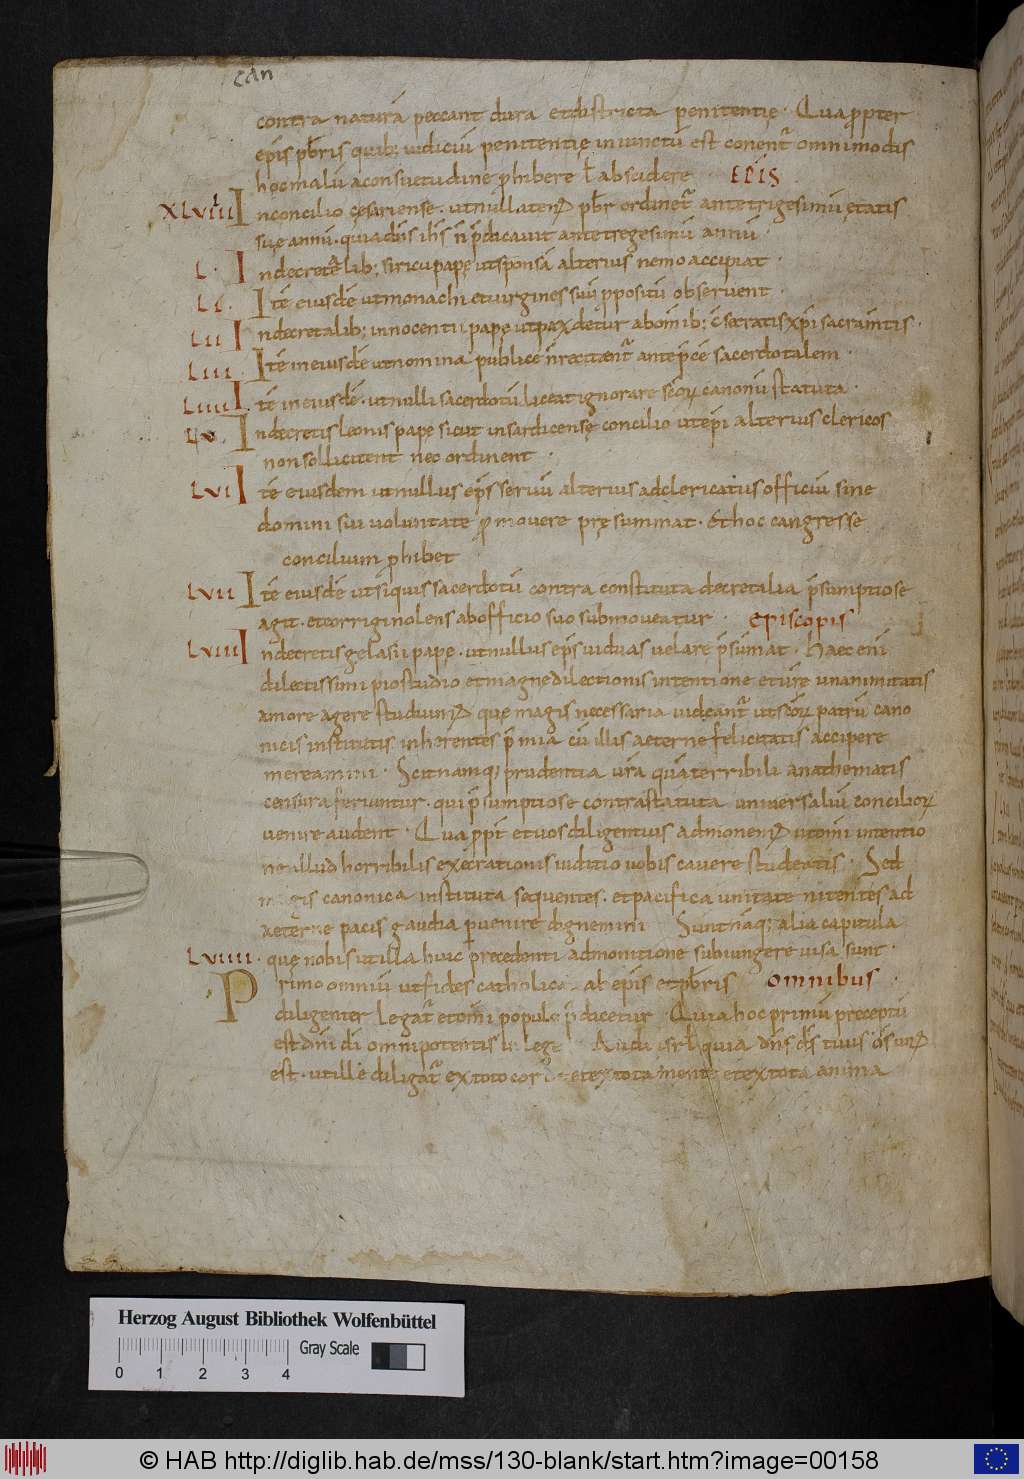 can
contra naturā peccant dura et districta penitentię · Quapropter
epīs pb̄ris quib; iudiciū penitentię iniunctū est conent̄ omnimodis
hoc malū a consuetudine ꝓhibere ł abscidere · EPĪS
XLVIIII In concilio cęsariense · ut nullaten pb̄r ordinet̄ ante trigesimū ętatis
suę annū · quia dn̄s ih̄s n̄ p̄dicauit ante tregesimū annū ·
L · In decretł lib; siricii papę ut sponsā alterius nemo accipiat ·
LI · Itē eiusdē ut monachi et uirgines suū ꝓpositū obseruent ·
LII In decretalib; innocentii papę ut pax detur ab om̄ib; c̄fectatis xp̄i sacram̄tis ·
LIII · Itē in eiusdē ut nomina publice n̄ recitent̄ ante p̄cē sacerdotalem ·
LIIII Itē in eiusdē · ut nulli sacerdotū liceat ignorare sc̄oꝝ canonū statuta ·
LV · In decretis leonis papę sicut in sardicensę concilio ut ep̄i alterius clericos
non sollicitent nec ordinent ·
LVI Itē eiusdem ut nullus ep̄s seruū alterius ad clericatus officiū sine
domini sui uoluntate ꝓmouere pręsummat · Et hoc cangresse
concilium ꝓhibet
LVII Itē eiusdē ut siquis sacerdotū contra constituta decretalia p̄sumptiose
agit · et corrigi nolens ab officio suo submoueatur · episcopis
LVIII In decretis gelasii papę · ut nullus ep̄s uiduas uelare p̄sumat · Haec eni
dilectissimi pio studio et magnę dilectionis intentione et ūrę unanimitatis
amore agere studuim quę magis necessaria uideant̄ ut sc̄oꝝ patrū cano
nicis institutis inherentes p̄mia cū illis aeternę felicitatis accipere
mereamini · Scit namq; prudentia ur̄a quā terribili anathematis
censura feriuntur · qui p̄sumptiose contra statuta uniuersaliū conciliorꝝ
uenire audent · Quapropt̄ et uos diligentius admonem ut om̄i intentio
ne illud horribilis execrationis iuditio uobis cauere studeatis · Sed
magis canonica instituta sequentes · et pacifica unitate nitentes ad
aeternę pacis gaudia p̲uenire dignemini Sunt nāq; alia capitula
LVIIII · quę nobis utilia huic pręcedenti admonitione subiungere uisa sunt ·
Primo omniū ut fides catholica ab epīs et pb̄ris omnibus ·
diligenter legat̄ et om̄i populo p̄dicetur · Quia hoc primū preceptū
est dn̄i dī omnipotentis in lege Audi isrł quia dn̄s ds̄ tuus ds̄ un
est · ut ille diligat̄ ex toto corde et ex tota mente et ex tota anima
Herzog August Bibliothek Wolfenbüttel
Gray Scale
0 1 2 3 4
© HAB http://diglib.hab.de/mss/130-blank/start.htm?image=00158